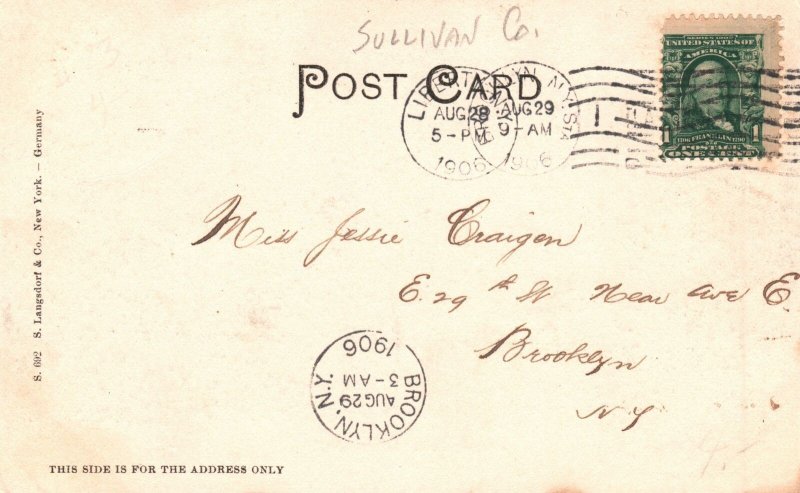 SULLIVAN Co.
POST CARD
LIBERTY
AUG 28
5-PM
1906
BROOKLYN, N.Y. STA
AUG 29
9-AM
1906
1
SERIES 1902
UNITED STATES OF
AMERICA
1706 FRANKLIN 1790
POSTAGE
1 ONE CENT 1
Miss Jessie Craigen
E. 29th St Near Ave E
Brooklyn
N Y
BROOKLYN, N.Y.
AUG 29
3-AM
1906
S. 692 S. Langsdorf & Co., New York. – Germany
THIS SIDE IS FOR THE ADDRESS ONLY